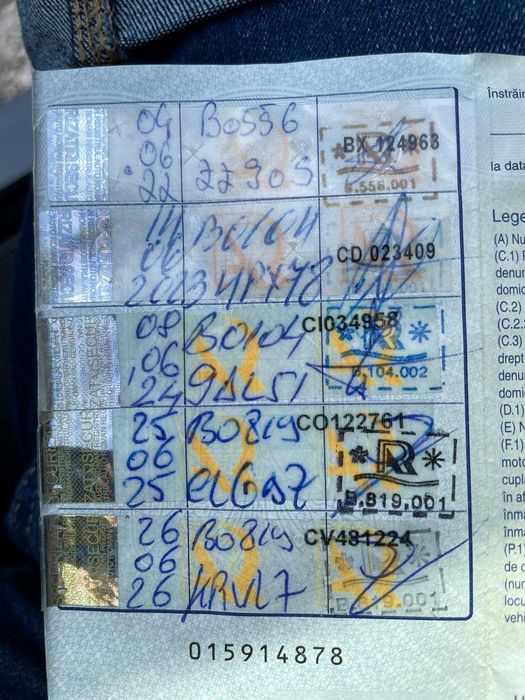 04
06
22
B0556
BX 124963
B.556.001
11
06
2023
B0104
CD 023409
08
06
24
B0104
CI034958
B.104.002
25
06
25
B0819
CO122761
B.819.001
26
06
26
B0819
CV481224
B.819.001
015914878
Înstrăin
la data
Lege
(A) Nu
(C.1)
denun
domic
(C.2)
(C.2.
(C.3)
drept
denun
domic
(D.1)
(E) N
(F.1)
moto
cupla
în a
înma
înma
(P.1)
de c
(nur
locu
vehi